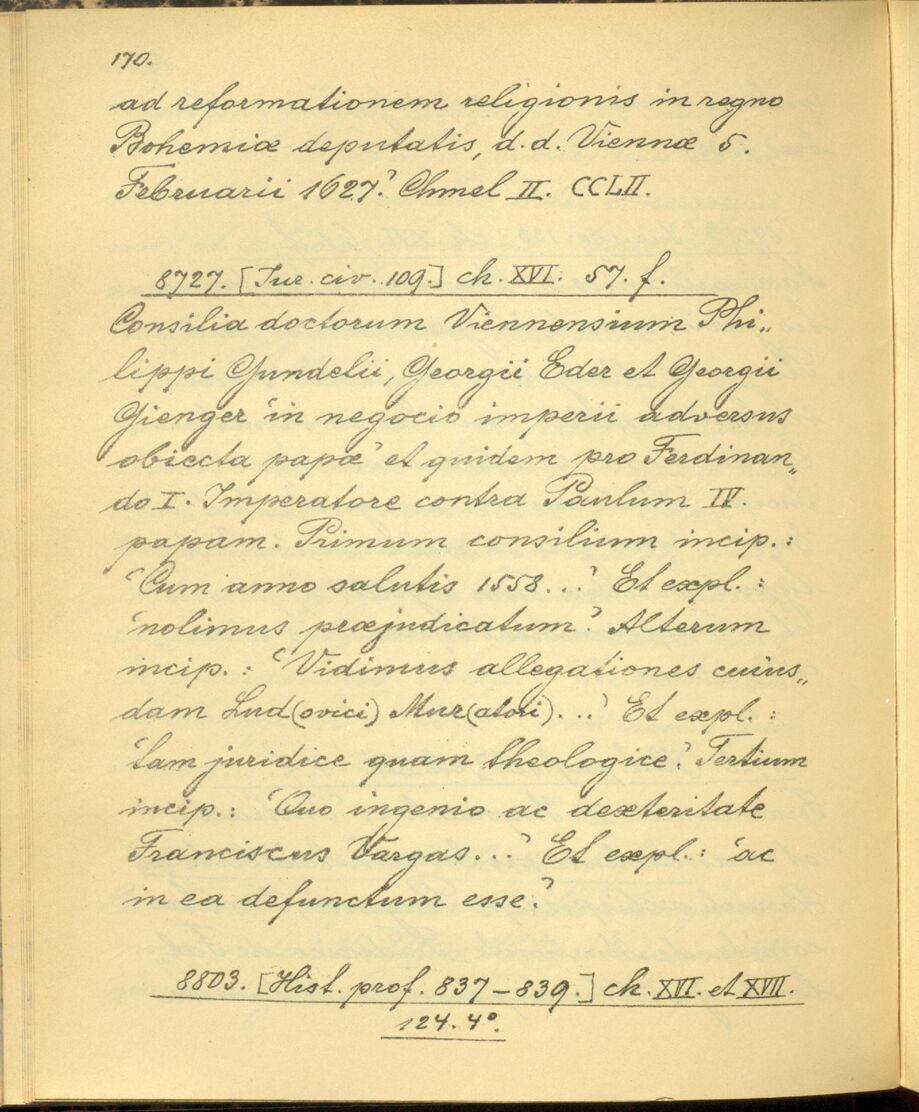 170.
ad reformationem religionis in regno
Bohemiæ deputatis, d. d. Viennæ 5.
Februarii 1627.' Chmel II. CCLII.
8727. [Iur. civ. 109.] ch. XVI. 57. f.
Consilia doctorum Viennensium Phi„
lippi Gundelii, Georgii Eder et Georgii
Gienger 'in negocio imperii adversus
obiecta papæ' et quidem pro Ferdinan„
do I. Imperatore contra Paulum IV.
papam. Primum consilium incip.:
'Cum anno salutis 1558...' Et expl.:
'nolimus præjudicatum.' Alterum
incip.: 'Vidimus allegationes cuius„
dam Lud(ovici) Mur(atori)...' Et expl.:
'tam juridice quam theologice.' Tertium
incip.: 'Quo ingenio ac dexteritate
Franciscus Vargas...' Et expl.: 'ac
in ea defunctum esse.'
8803. [Hist. prof. 837–839.] ch. XVI. et XVII.
124. 4°.